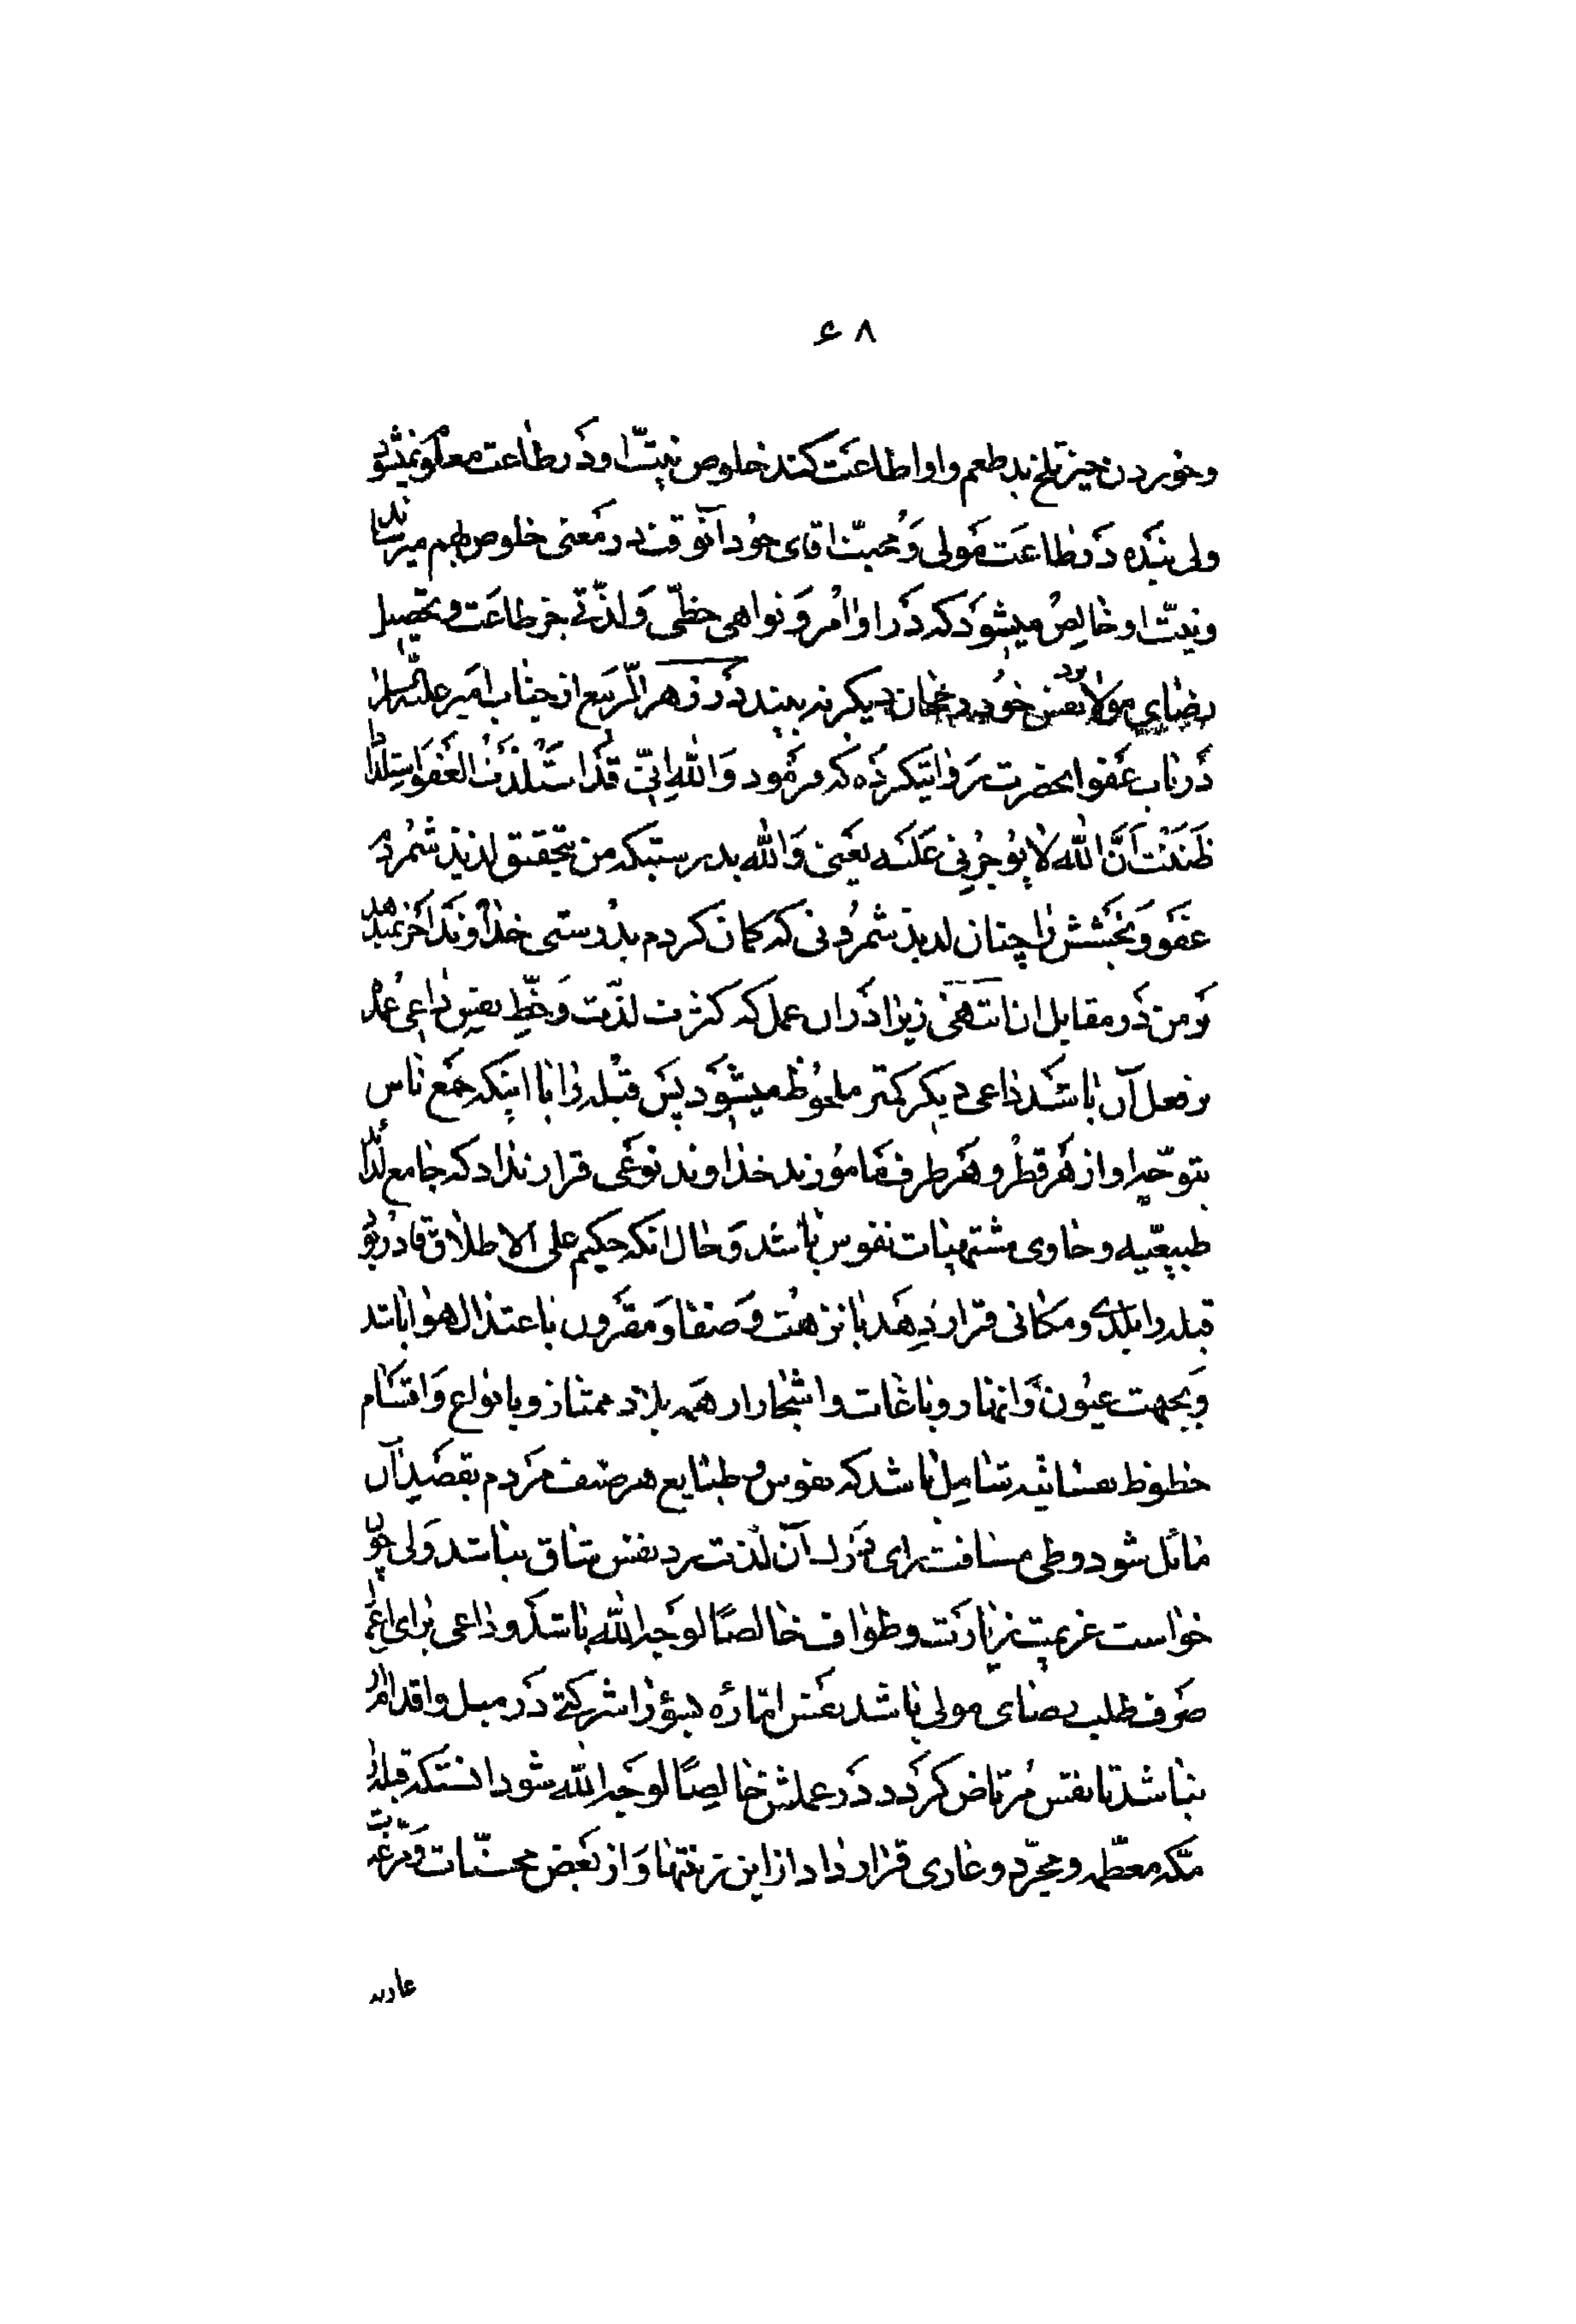 ۶۸
وخوردن چیز تلخ بد طعم و او اطاعت کند خلوص نیت او در طاعت معلوم نمیشود
ولی بنده در طاعت مولی و محبت اقای خود آنوقت در معنی خلوص بهم میرساند
و نیت او خالص میشود که در اوامر و نواهی حظی و لذتی بجز طاعت و تحصیل
رضای مولا برد نفس خود در خان دیگر نه بیند در زهر الربیع از جناب امیر علیه السلام
در باب عفو انحضرت روایت کرده که فرمود وَاللهِ اِنّی قَد استَلذَذتُ العَفوَ استِلذاذًا
ظَنَنتُ اَنَّ اللهَ لا یُوجِرُنی عَلَیه یعنی والله بدرستیکه من بتحقیق لذیذ شمردم
عفو و بخشش را چنان لذیذ شمردنی که کمان کردم بدرستی خداوند اجر نمیدهد
و من در مقابل ان انتهی زیرا در ان عمل که کثرت لذت و حظ نفس داعی عمل
بر فعل آن باشد داعی دیکر کمتر ملحوظ میشود پس قبله را با اینکه جمع ناس
بتوحید او از هر قطر و هر طرف مامورند خداوند نوعی قرار نداد که جامع لذائذ
طبیعیه و حاوی مشتهیات نفوس باشد و حال انکه حکیم علی الاطلاق قادر بود
قبله را ببلدی و مکانی قرار دهد با نزهت و صفا و مقرون باعتدال هوا باشد
و بجهت عیون و انهار و باغات و اشجار از همه بلاد ممتاز و بانواع و اقسام
حظوظ نفسانیه شامل باشد که نفوس و طبایع هر صنف مردم بقصد آن
مائل شود و طی مسافت برای درک آن لذت برد نفس شاق نباشد ولی چون
خواست عزیمت زیارت و طواف خالصًا لوجه الله باشد و داعی برای اعمال
صرف طلب رضای مولی باشد نفس اماره بسؤ را شرکتی در میل و اقدام
نباشد تا نفس مرتاض کردد در عملش خالصًا لوجه الله شود دانستکه قبله را
مکه معظمه و مجرد و عاری قرار داد از این زینتها و از بعض محسنات و مزینات
عاریه